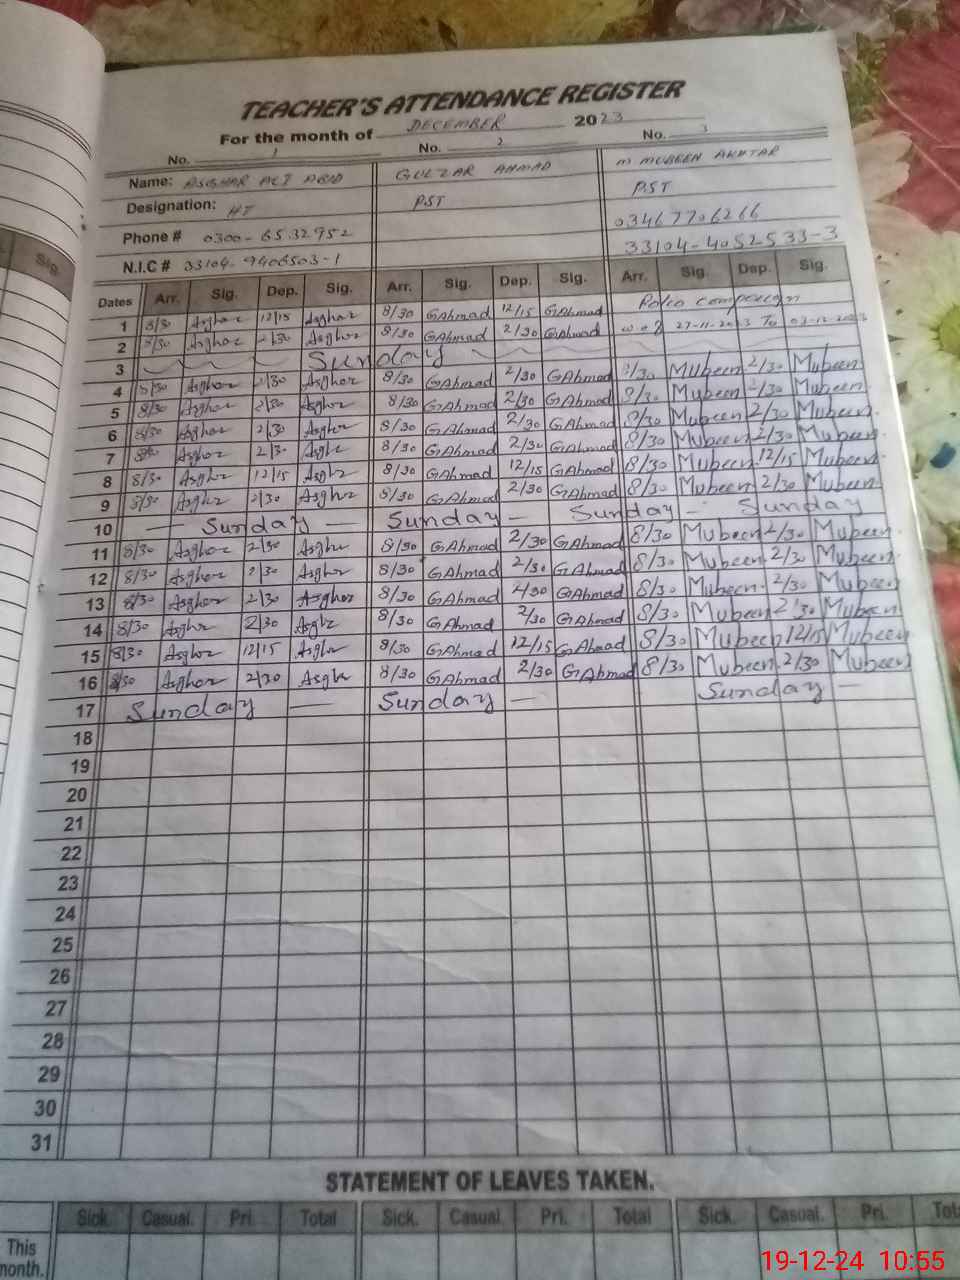 Sig.
TEACHER'S ATTENDANCE REGISTER
For the month of DECEMBER 2023
No. 1 No. 2 No. 3
Name: ASGHAR ALI ABID GULZAR AHMAD M MUBEEN AKHTAR
Designation: HT PST PST
Phone # 0300-6532952 03467706266
N.I.C # 33104-9406503-1 33104-4052533-3
Dates Arr. Sig. Dep. Sig. Arr. Sig. Dep. Sig. Arr. Sig. Dep. Sig.
1 8/30 Asghar 12/15 Asghar 8/30 GAhmad 12/15 GAhmad Polio
2 8/30 Asghar 2/30 Asghar 8/30 GAhmad 2/30 GAhmad 27-11-2023 To 03-12-2023
3 Sunday
4 8/30 Asghar 2/30 Asghar 8/30 GAhmad 2/30 GAhmad 8/30 Mubeen 2/30 Mubeen
5 8/30 Asghar 2/30 Asghar 8/30 GAhmad 2/30 GAhmad 8/30 Mubeen 2/30 Mubeen
6 8/30 Asghar 2/30 Asghar 8/30 GAhmad 2/30 GAhmad 8/30 Mubeen 2/30 Mubeen
7 Asghar 2/30 8/30 GAhmad 2/30 GAhmad 8/30 Mubeen 2/30 Mubeen
8 8/30 Asghar 12/15 8/30 GAhmad 12/15 GAhmad 8/30 Mubeen 12/15 Mubeen
9 8/30 Asghar 2/30 8/30 GAhmad 2/30 GAhmad 8/30 Mubeen 2/30 Mubeen
10 — Sunday — Sunday — Sunday — Sunday
11 8/30 Asghar 2/30 8/30 GAhmad 2/30 GAhmad 8/30 Mubeen 2/30 Mubeen
12 8/30 Asghar 2/30 8/30 GAhmad 2/30 GAhmad 8/30 Mubeen 2/30 Mubeen
13 8/30 Asghar 2/30 Asghar 8/30 GAhmad 2/30 GAhmad 8/30 Mubeen 2/30 Mubeen
14 8/30 2/30 8/30 GAhmad 2/30 GAhmad 8/30 Mubeen 2/30 Mubeen
15 8/30 Asghar 12/15 8/30 GAhmad 12/15 GAhmad 8/30 Mubeen 12/15 Mubeen
16 8/30 Asghar 2/30 8/30 GAhmad 2/30 GAhmad 8/30 Mubeen 2/30 Mubeen
17 Sunday — Sunday — Sunday —
18
19
20
21
22
23
24
25
26
27
28
29
30
31
STATEMENT OF LEAVES TAKEN.
Sick. Casual. Pri. Total Sick. Casual. Pri. Total Sick. Casual. Pri.
This
month.
19-12-24 10:55